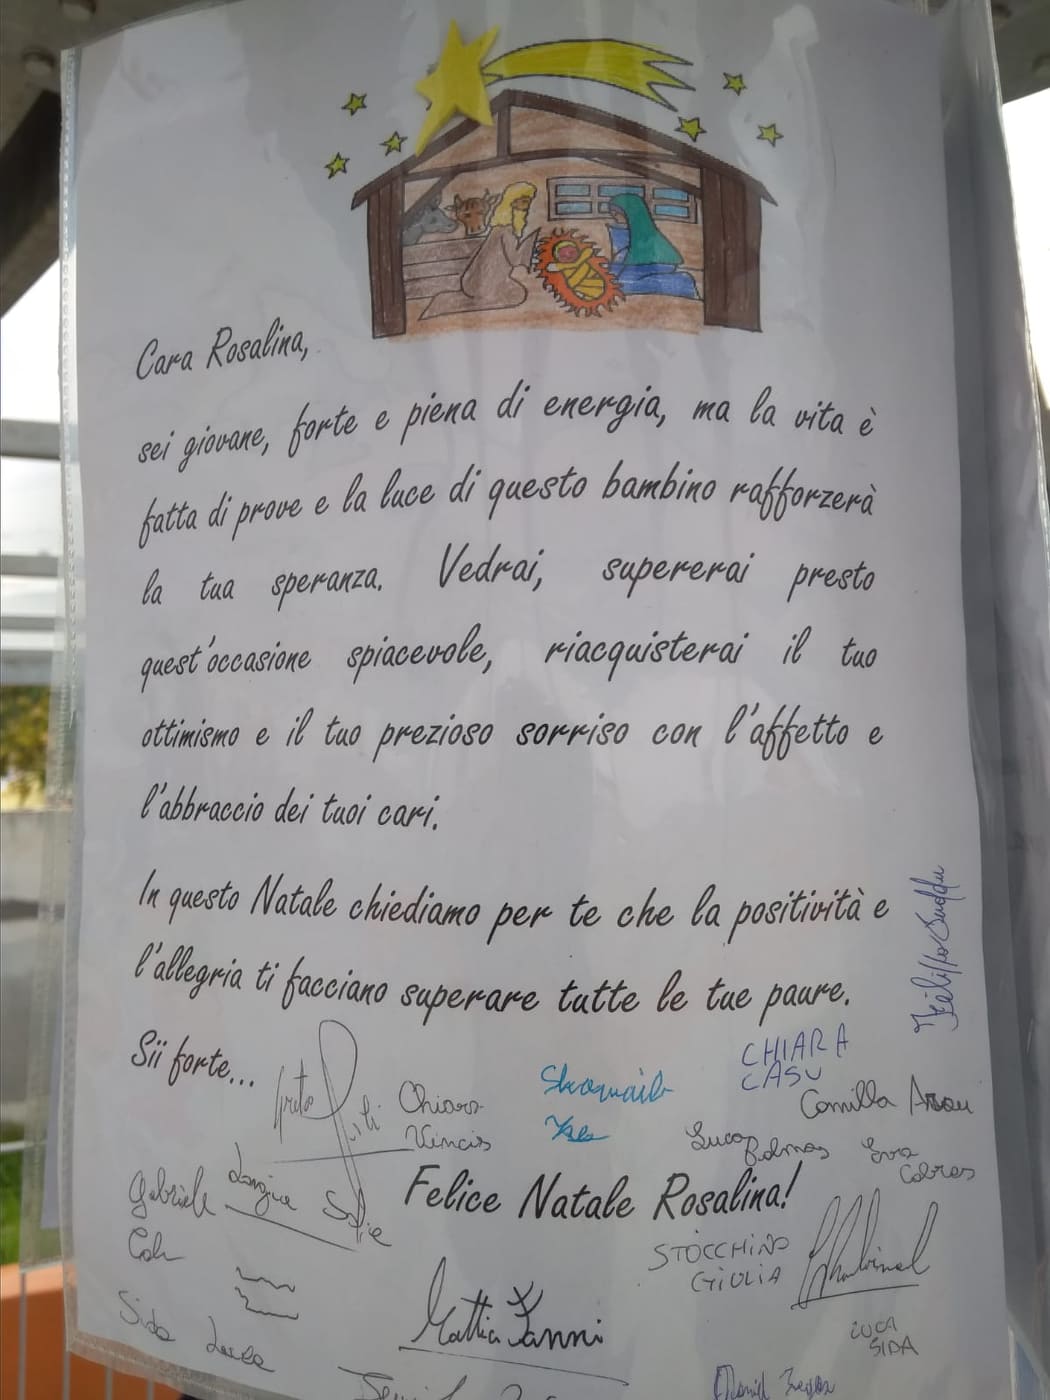 Cara Rosalina,
sei giovane, forte e piena di energia, ma la vita è
fatta di prove e la luce di questo bambino rafforzerà
la tua speranza. Vedrai, supererai presto
quest'occasione spiacevole, riacquisterai il tuo
ottimismo e il tuo prezioso sorriso con l'affetto e
l'abbraccio dei tuoi cari.
In questo Natale chiediamo per te che la positività e
l'allegria ti facciano superare tutte le tue paure.
Sii forte...
CHIARA
CASU
Chiara
Vincis
Camilla
Luca
Gabriele
Felice Natale Rosalina!
STOCCHINO
GIULIA
Mattia Fanni
LUCA
SIDA